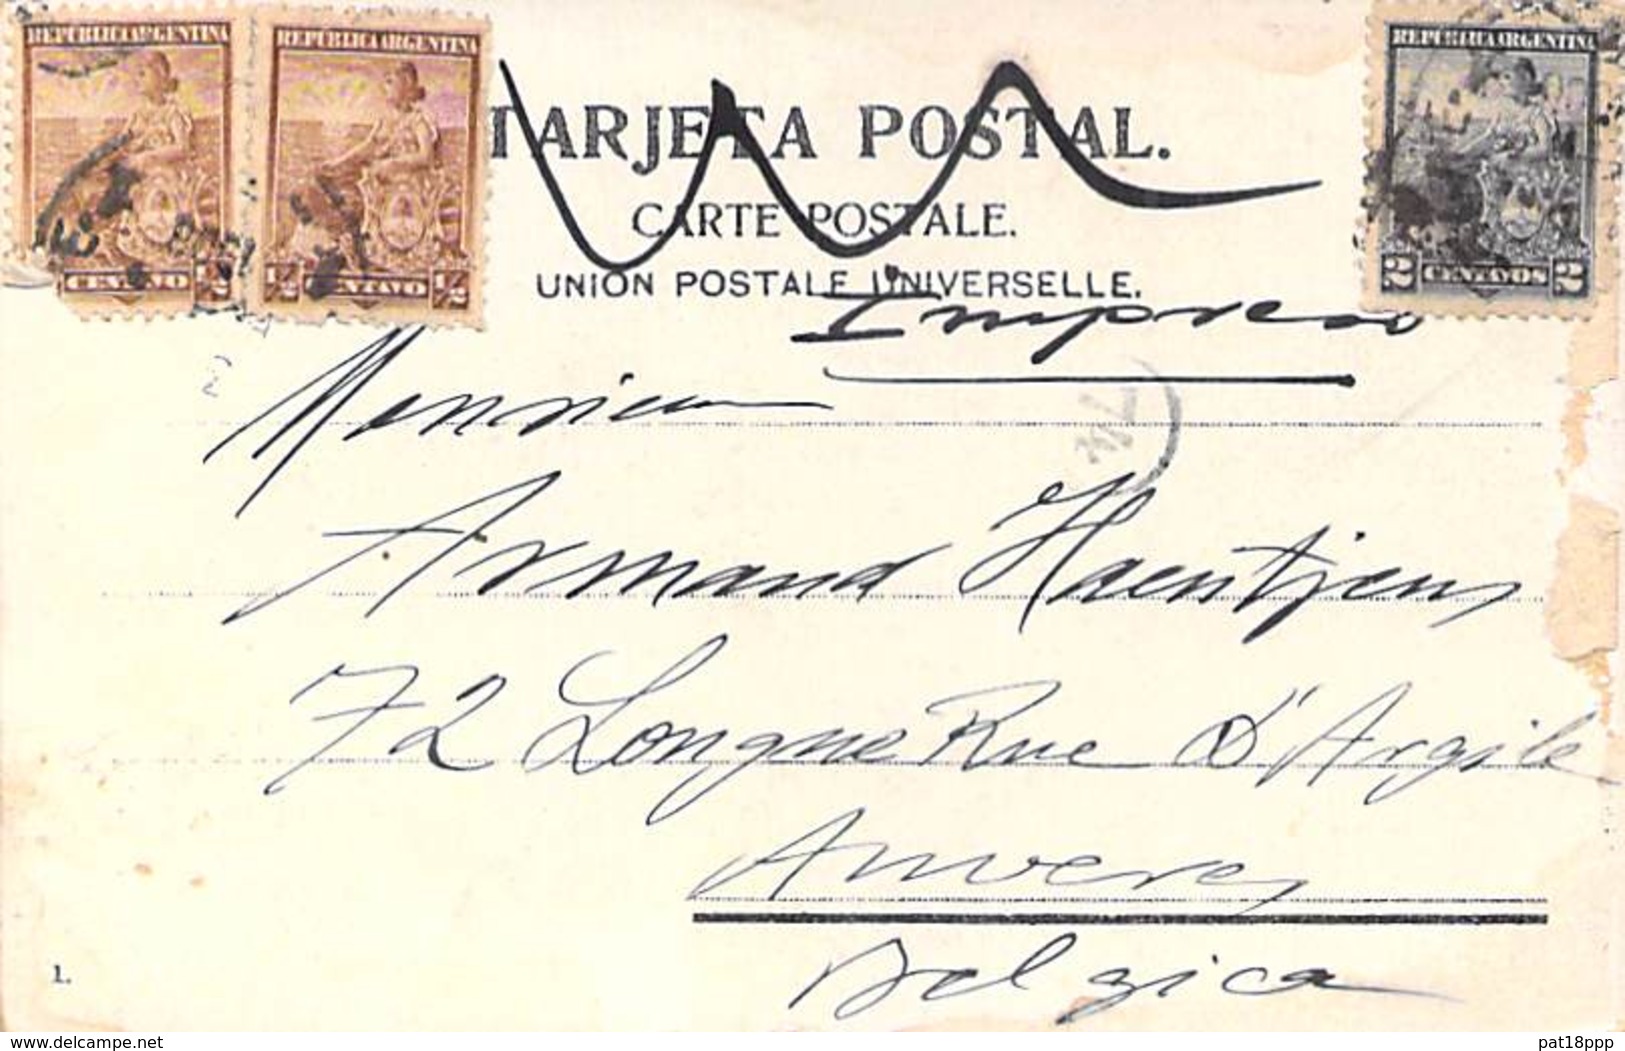 REPUBLICA ARGENTINA
REPUBLICA ARGENTINA
REPUBLICA ARGENTINA
TARJETA POSTAL.
CARTE POSTALE.
UNION POSTALE UNIVERSELLE.
CENTAVO ½
½ CENTAVO ½
2 CENTAVOS 2
Impreso
Monsieur
Armand Haentjens
72 Longue Rue d'Argile
Anvers
Belgica
1.
www.delcampe.net
pat18ppp